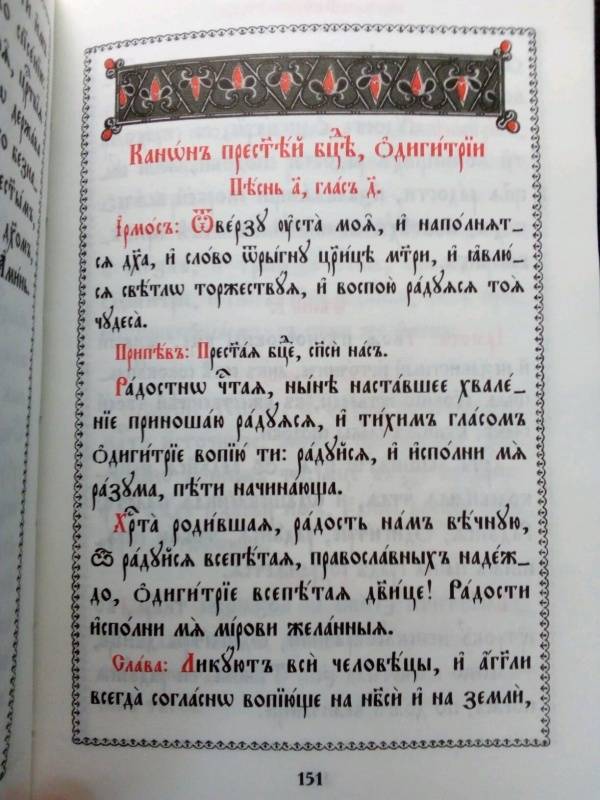 Канѡ́нъ прест҃ѣ́й бц҃ѣ, ѻ҆диги́трїи
Пѣ́снь а҃, гла́съ д҃.
І҆рмо́съ: Ѿве́рзу ѹ҆ста̀ моѧ̑, и҆ напо́лнѧт_
сѧ дх҃а, и҆ сло́во ѿры́гну цр҃и́цѣ мт҃ри, и҆ ꙗ҆влю́_
сѧ свѣ́тлѡ торжеству́ѧ, и҆ воспою̀ ра́дуѧсѧ тоѧ̀
чудеса̀.
Припѣ́въ: Прест҃а́ѧ бц҃е, сп҃сѝ на́съ.
Ра́достнѡ чт҃аѧ, ны́нѣ наста́вшее хвале́_
нїе приношаю̀ ра́дуѧсѧ, и҆ ти́химъ гла́сомъ
ѻ҆диги́трїе вопїю́ ти: ра́дуйсѧ, и҆ и҆спо́лни мѧ̀
ра́зума, пѣ́ти начина́юща.
Хрⷭ҇та̀ роди́вшаѧ, ра́дость на́мъ вѣ́чную,
ѽ ра́дуйсѧ всепѣ́таѧ, правосла́вныхъ наде́ж_
до, ѻ҆диги́трїе всепѣ́таѧ дв҃и́це! Ра́дости
и҆спо́лни мѧ̀ мі́рови жела́нныѧ.
Сла́ва: Лику́ютъ всѝ человѣ́цы, и҆ а҆́гг҃ли
всегда̀ согла́снѡ вопїю́ще на нб҃сѝ и҆ на землѝ,
151